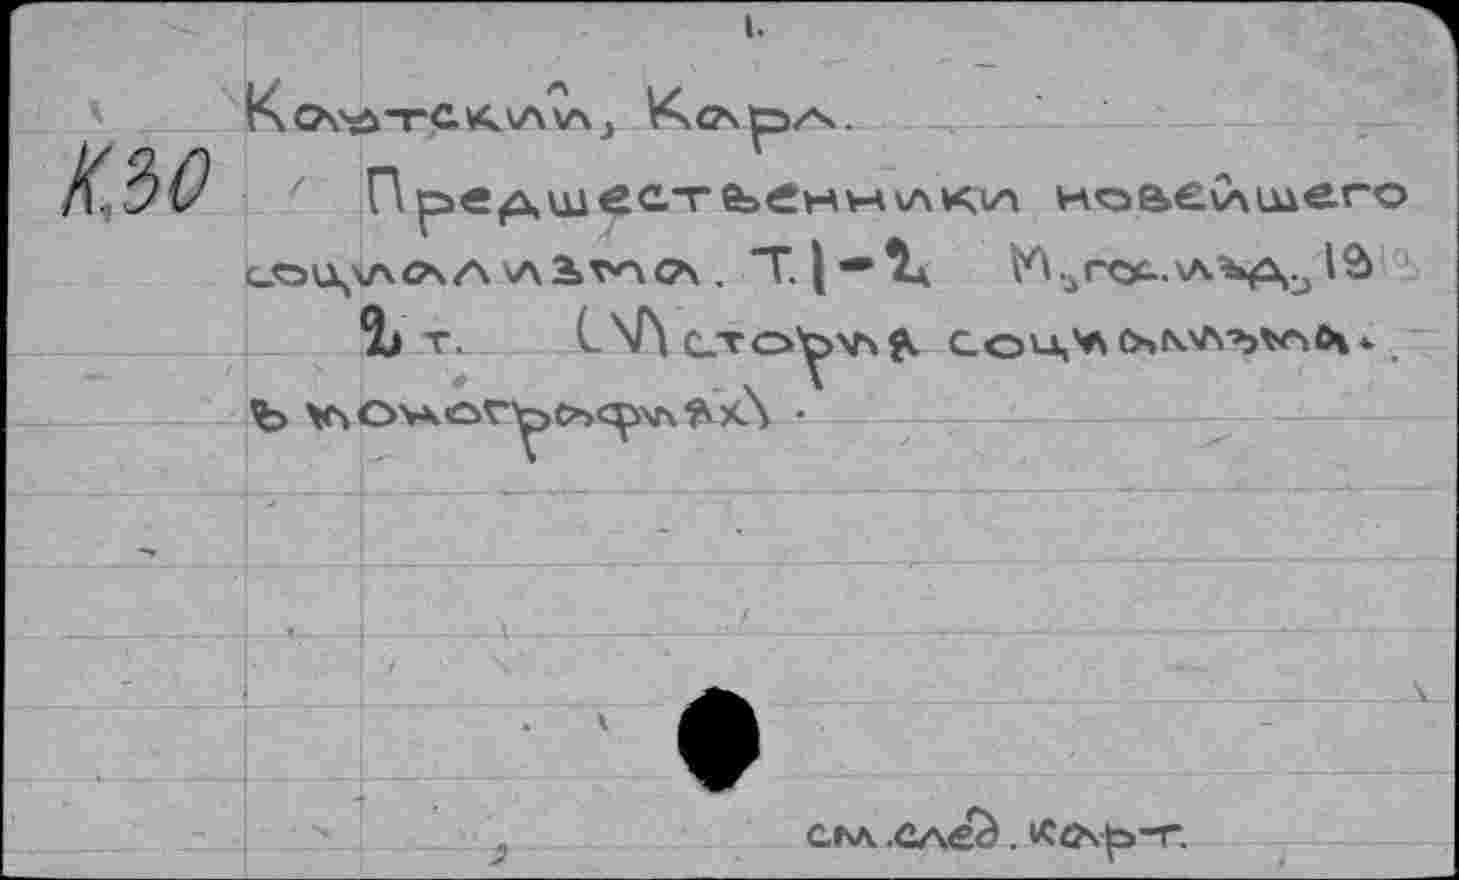 1.
Каутский, Карл.
К.30
Предшественники новейшего
социализма. Т. 1-2. М., гос. изд., 19
2 т. (История социализма.
в монографиях)
см. след. карт.